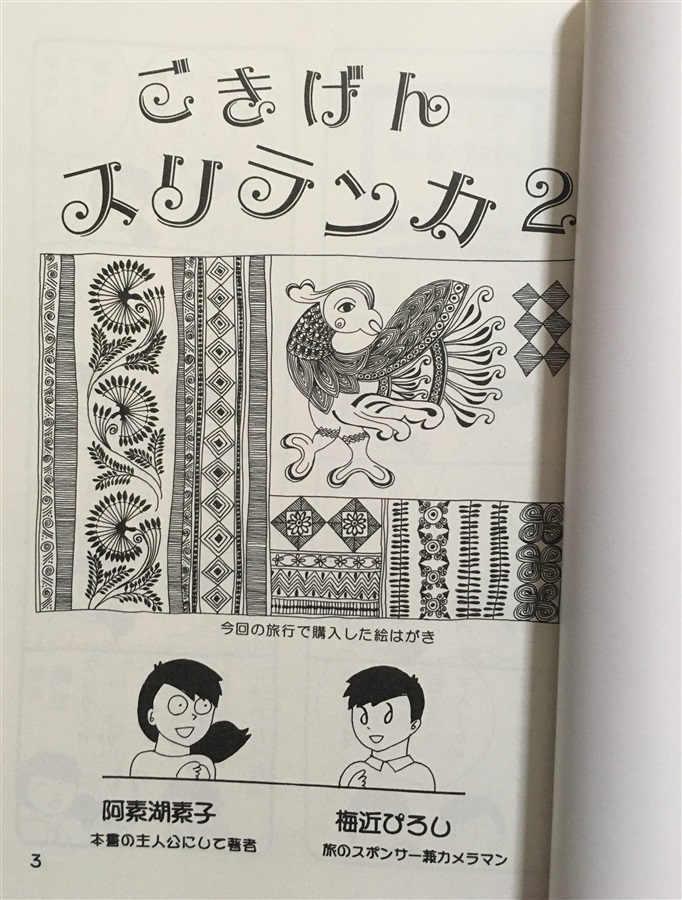 ごきげん
スリランカ2
今回の旅行で購入した絵はがき
阿素湖素子
本書の主人公にして著者
梅近ぴろし
旅のスポンサー兼カメラマン
3